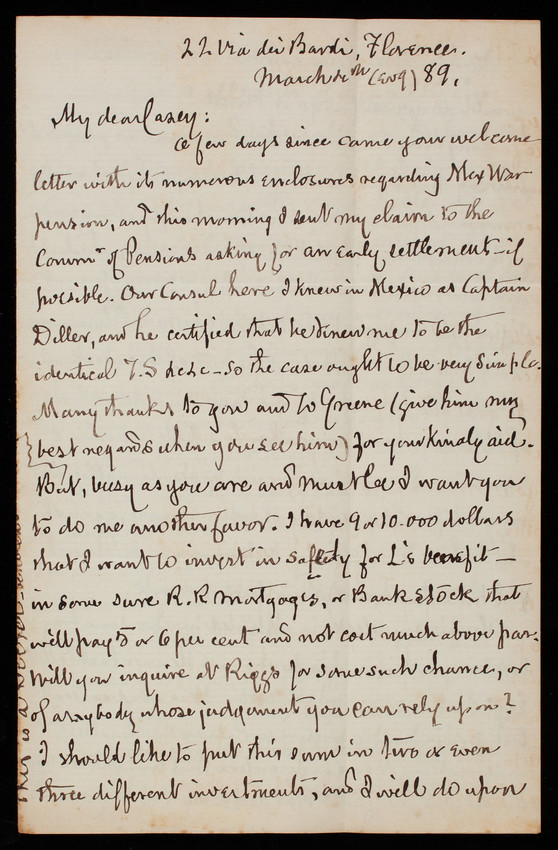 22 Via dei Bardi, Florence.
March 4th (evg) 89.
My dear Casey:
A few days since came your welcome
letter with its numerous enclosures regarding Mex War
pension, and this morning I sent my claim to the
Commr of Pensions asking for an early settlement - if
possible. Our Consul here I knew in Mexico as Captain
Diller, and he certified that he knew me to be the
identical T.S &c &c - so the case ought to be very simple.
Many thanks to you and to Greene (give him my
best regards when you see him) for your kindly aid.
But, busy as you are and must be I want you
to do me another favor. I have 9 or 10.000 dollars
that I want to invest in safety for L's benefit -
in some sure R.R mortgages, or Bank Stock that
will pay 5 or 6 per cent and not cost much above par.
Will you inquire at Riggs for some such chance, or
of anybody whose judgement you can rely upon?
I should like to put this sum in two or even
three different investments, and I will do upon
This is a